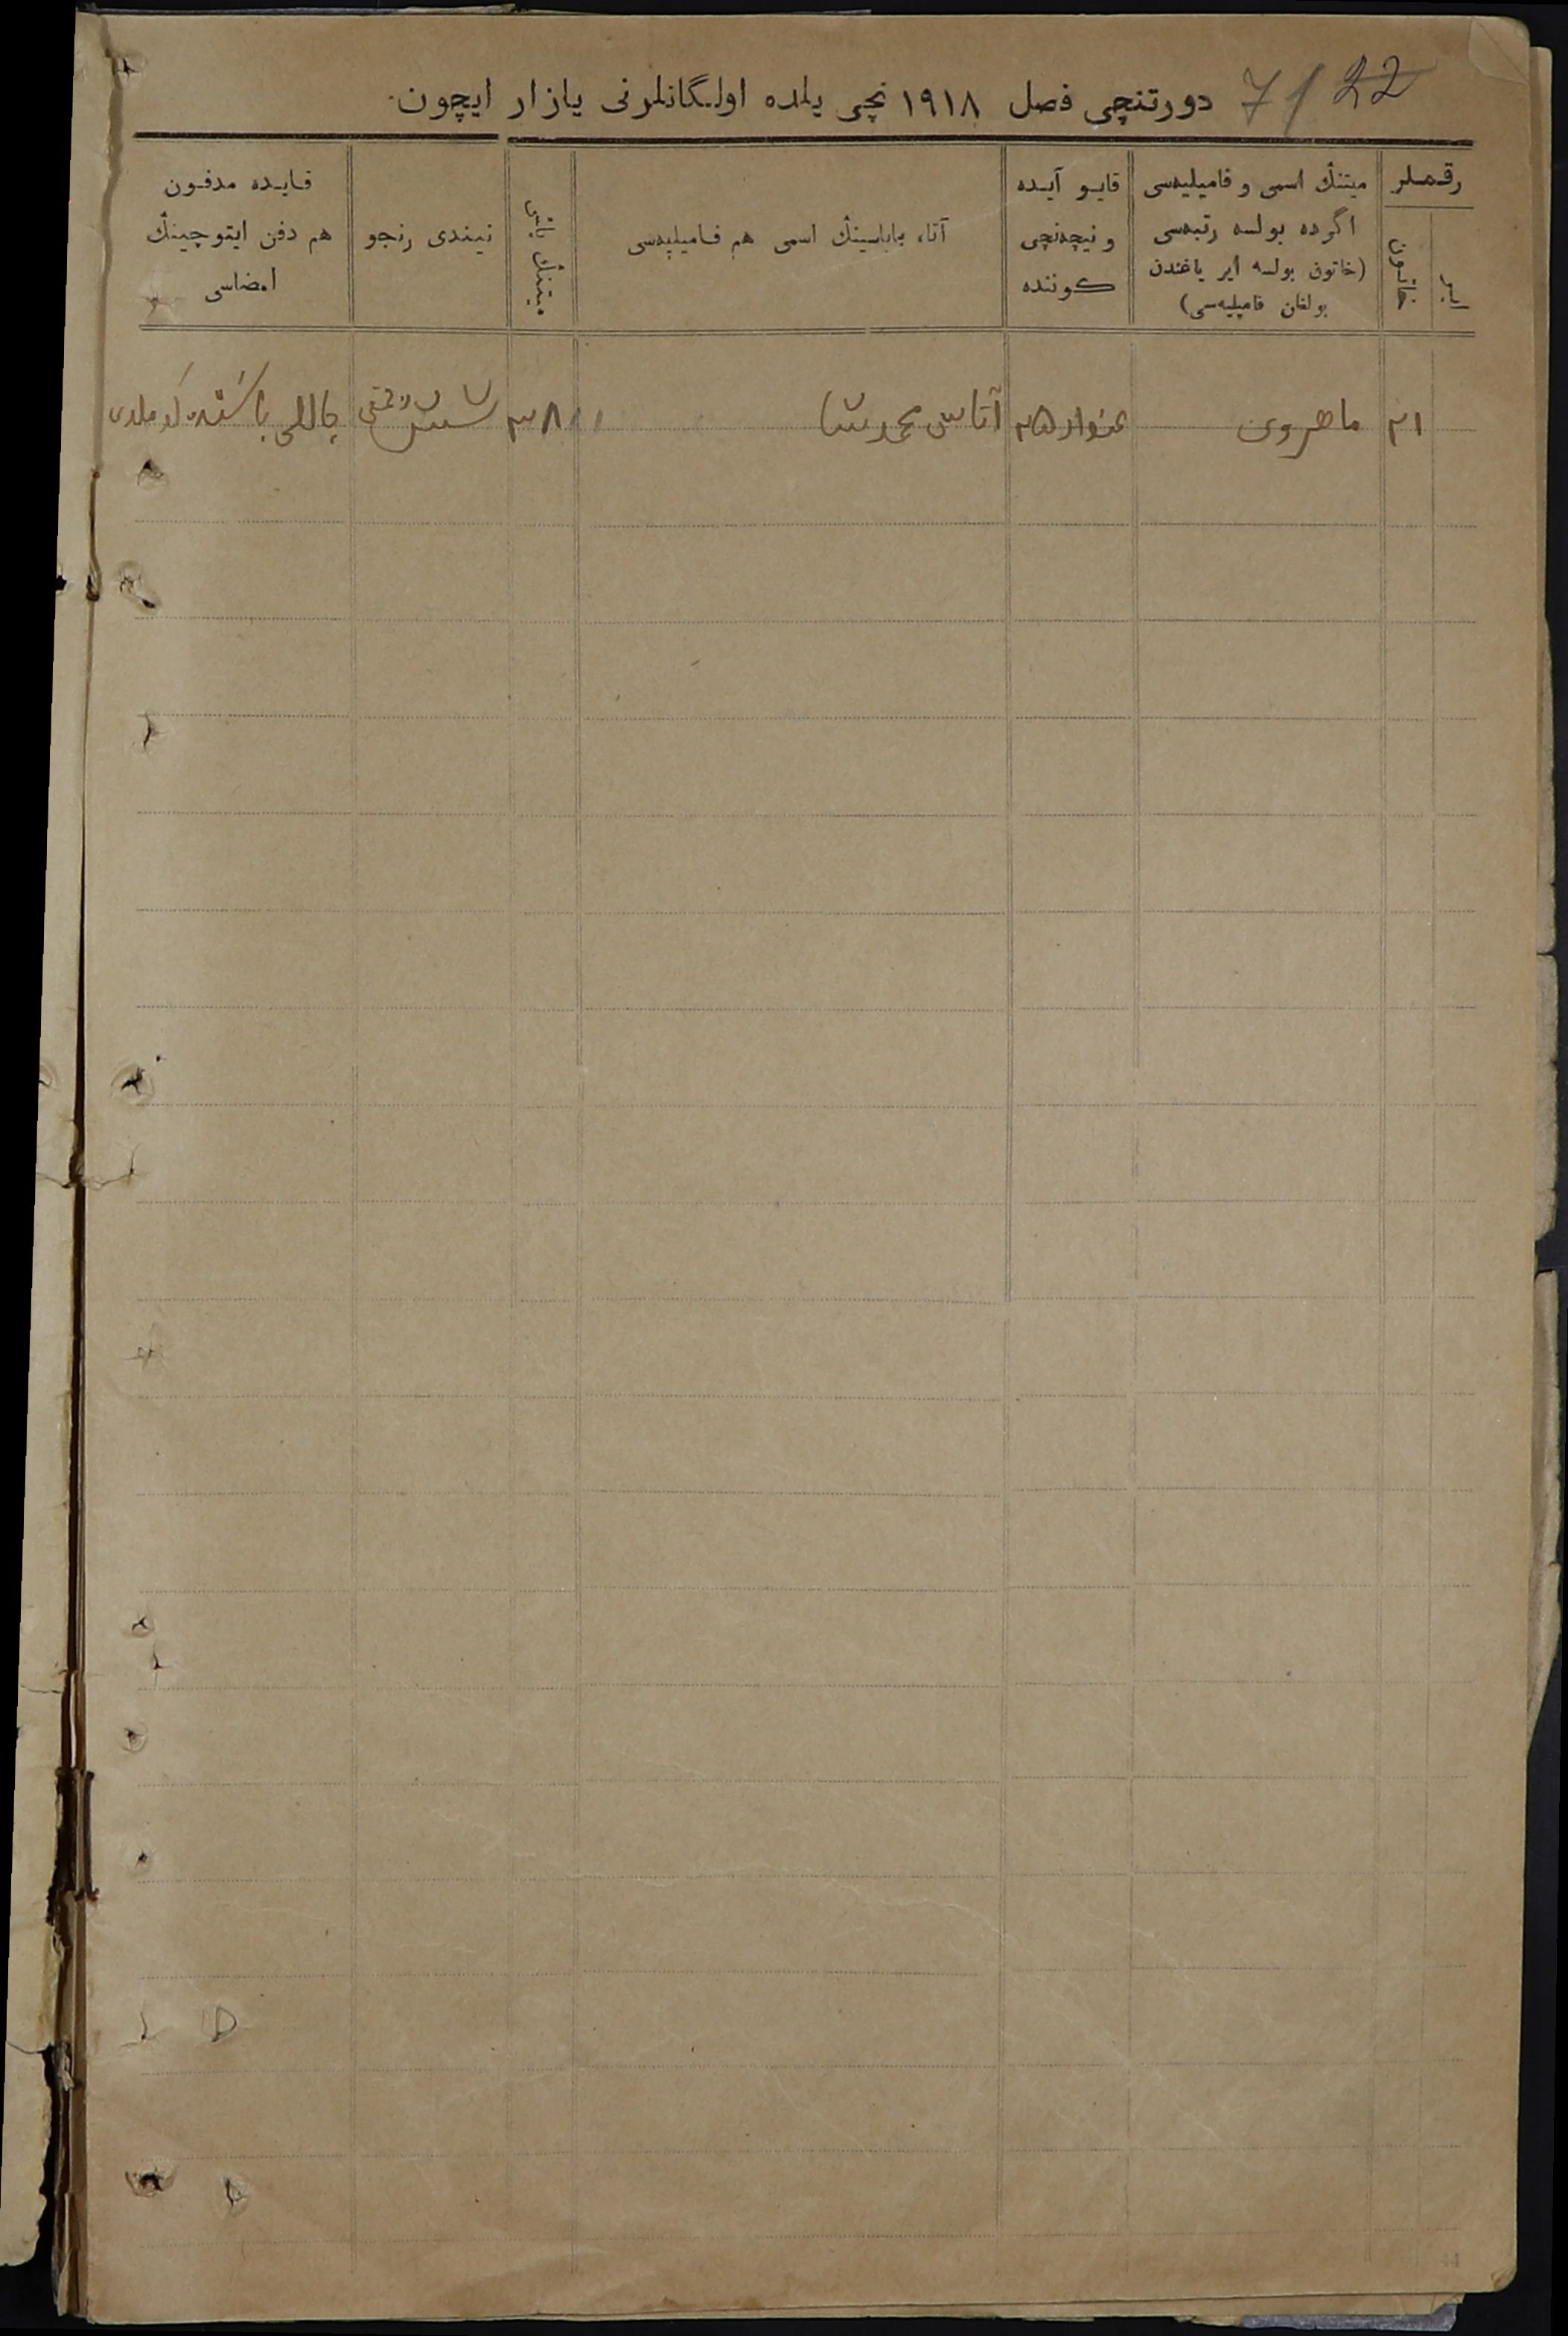 دورتنچی فصل ۱۹۱۸ نچی یلده اولگانلرنی یازار ایچون.
7/ 22
رقملر
ایر
خاتون
میتنڭ اسمی و فامیلیه‌سی
اگرده بولسه رتبه‌سی
(خاتون بولسه ایر یاغندن
بولغان فامیلیه‌سی)
قایو آیده
و نیچه‌نچی
کوننده
آتا، باباسینڭ اسمی هم فامیلیه‌سی
میتنڭ یاشی
نیندی رنجو
قایده مدفون
هم دفن ایتوچینڭ
امضاسی
۲۱
ماهروی
۲۵
آتاسی محمدشا
۳۸
44